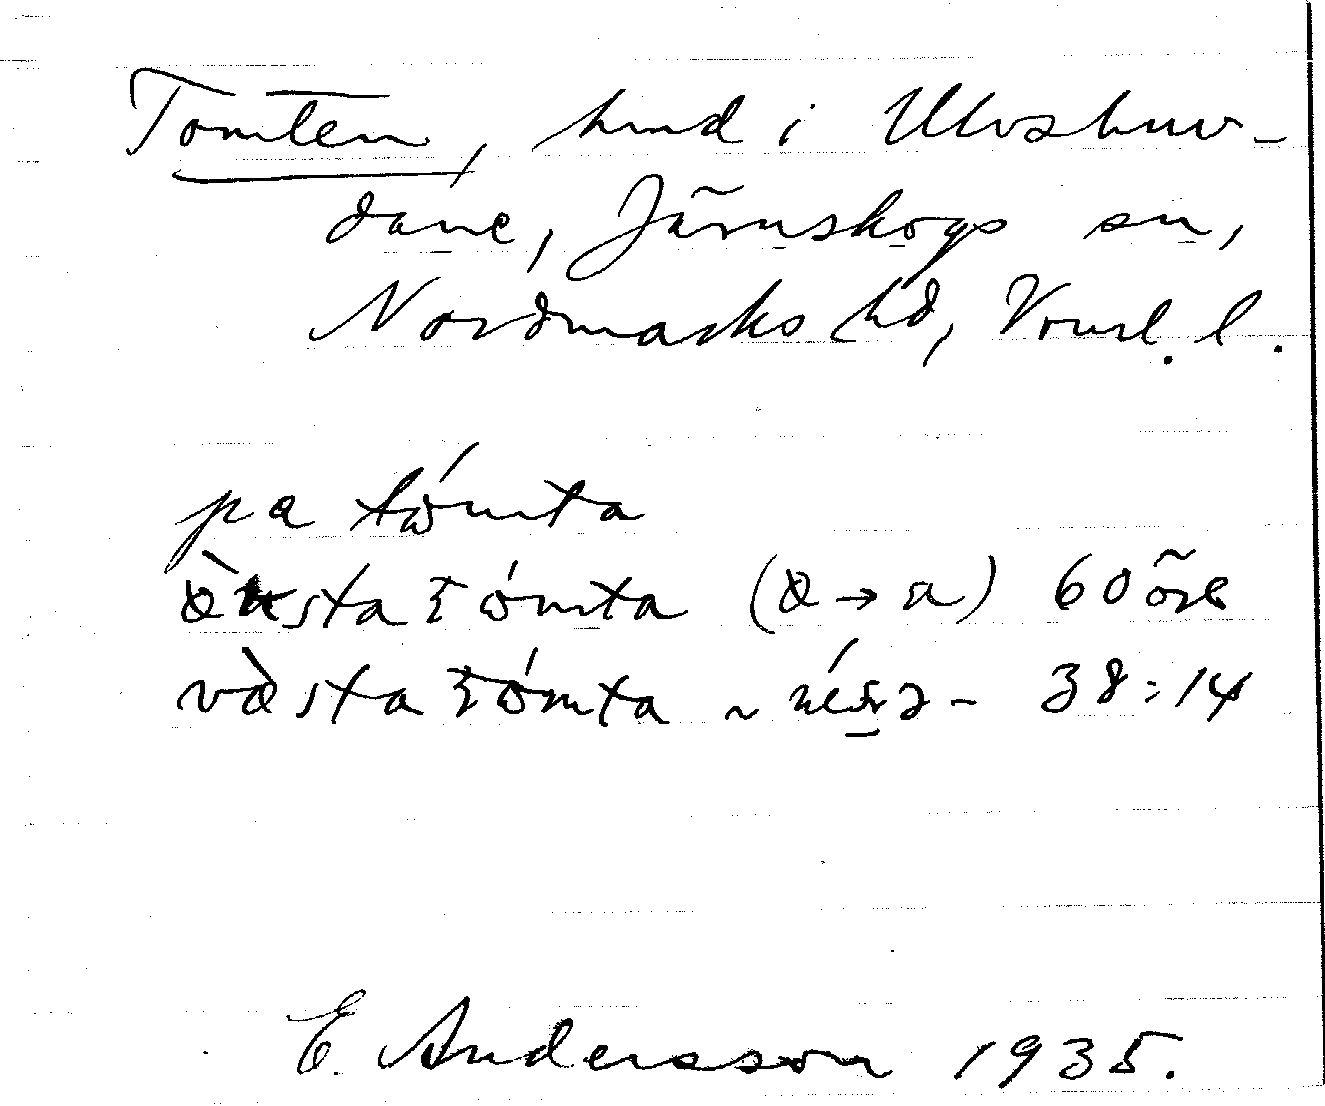 Tomten, hmd i Ulvshuv-
dane, Järnskogs sn,
Nordmarks hd, Vrml. l.
pa tómta
sta tómta (ò → a) 60 öre
væ̀sta tómta ~ - 38:14
E. Andersson 1935.